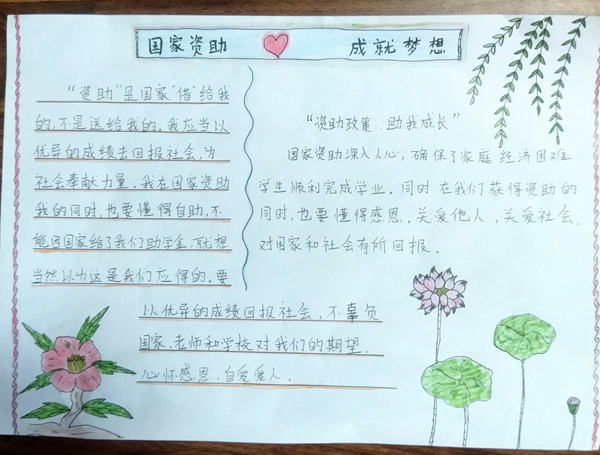 国家资助 成就梦想
“资助”是国家“借”给我
的,不是送给我的。我应当以
优异的成绩去回报社会,为
社会奉献力量。我在国家资助
我的同时,也要懂得自助,不
能因国家给了我们助学金,就想
当然以为这是我们应得的。要
以优异的成绩回报社会,不辜负
国家、老师和学校对我们的期望.
心怀感恩,自爱爱人.
“资助政策.助我成长”
国家资助深入人心,确保了家庭经济困难
学生顺利完成学业,同时在我们获得资助的
同时,也要懂得感恩.关爱他人,关爱社会.
对国家和社会有所回报.